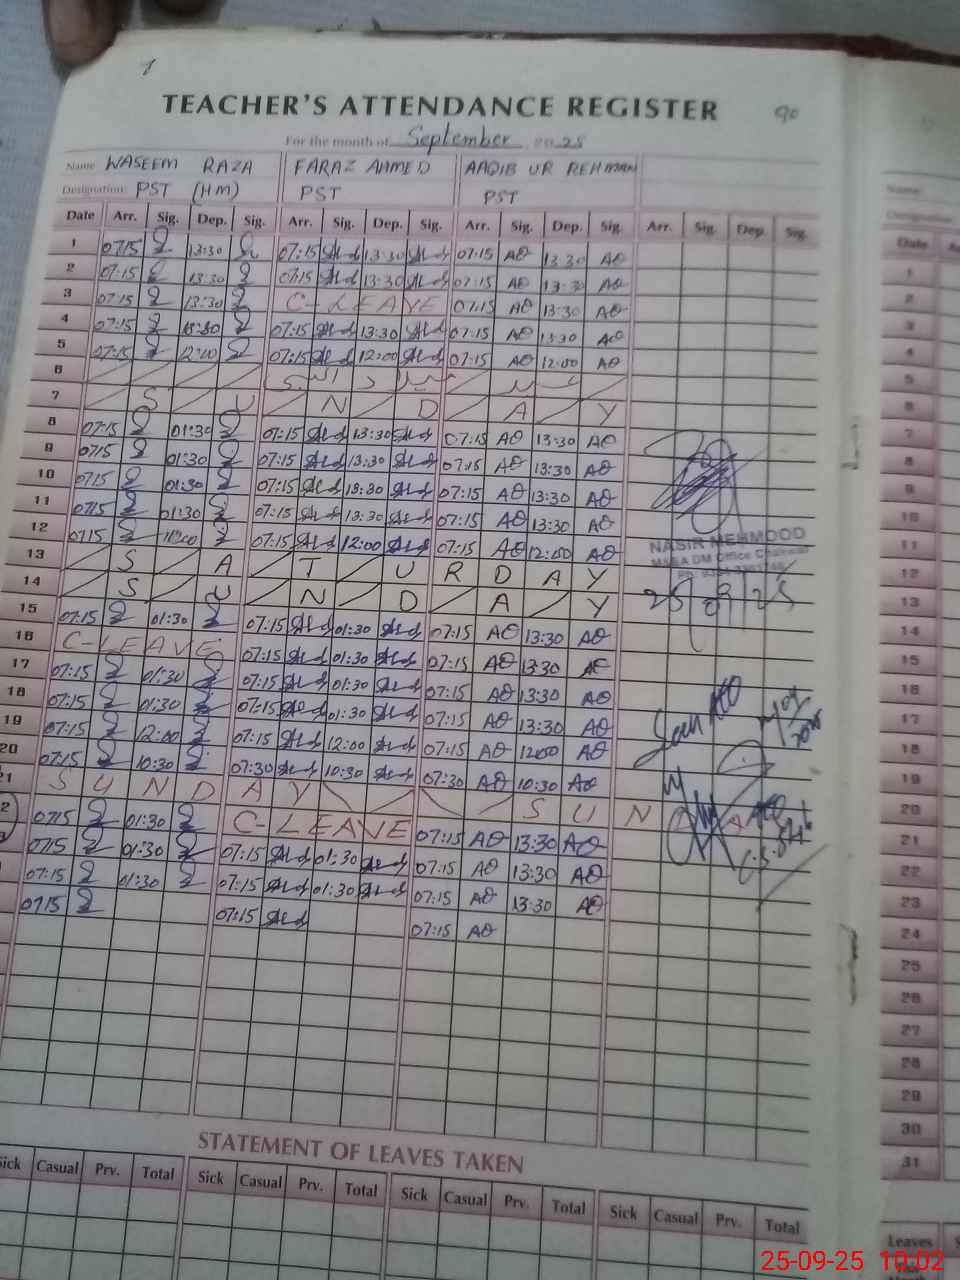 TEACHER'S ATTENDANCE REGISTER 90
For the month of September 2025
Name WASEEM RAZA FARAZ AHMED AAQIB UR REHMAN
Designation: PST (HM) PST PST
Date Arr. Sig. Dep. Sig. Arr. Sig. Dep. Sig. Arr. Sig. Dep. Sig. Arr. Sig. Dep. Sig.
1 0715 13:30 07:15 13:30 07:15 13:30
2 07:15 13:30 07:15 13:30 07:15 13:30
3 07:15 13:30 C-LEAVE 07:15 13:30
4 07:15 13:30 07:15 13:30 07:15 13:30
5 07:15 12:00 07:15 12:00 07:15 12:00
6
7 SUNDAY
8 07:15 01:30 07:15 13:30 07:15 13:30
9 0715 01:30 07:15 13:30 07:15 13:30
10 0715 01:30 07:15 13:30 07:15 13:30
11 0715 01:30 07:15 13:30 07:15 13:30
12 0715 07:15 12:00 07:15 12:00
13 SATURDAY
14 SUNDAY
15 07:15 01:30 07:15 01:30 07:15 13:30
16 C-LEAVE 07:15 01:30 07:15 13:30
17 07:15 01:30 07:15 01:30 07:15 13:30
18 07:15 01:30 07:15 01:30 07:15 13:30
19 07:15 12:00 07:15 12:00 07:15 1200
20 07:15 10:30 07:30 10:30 07:30 10:30
21 SUNDAY SUNDAY
0715 01:30 C-LEAVE 07:15 13:30
0715 01:30 07:15 01:30 07:15 13:30
07:15 01:30 07:15 01:30 07:15 13:30
0715 07:15 07:15
NASIR MEHMOOD
MAEA DM Office Chakwal
25/09/25
STATEMENT OF LEAVES TAKEN
Sick Casual Prv. Total Sick Casual Prv. Total Sick Casual Prv. Total Sick Casual Prv. Total
Name:
Date
1
2
3
4
5
6
7
8
9
10
11
12
13
14
15
16
17
18
19
20
21
22
23
24
25
26
27
28
29
30
31
Leaves
25-09-25 10:02